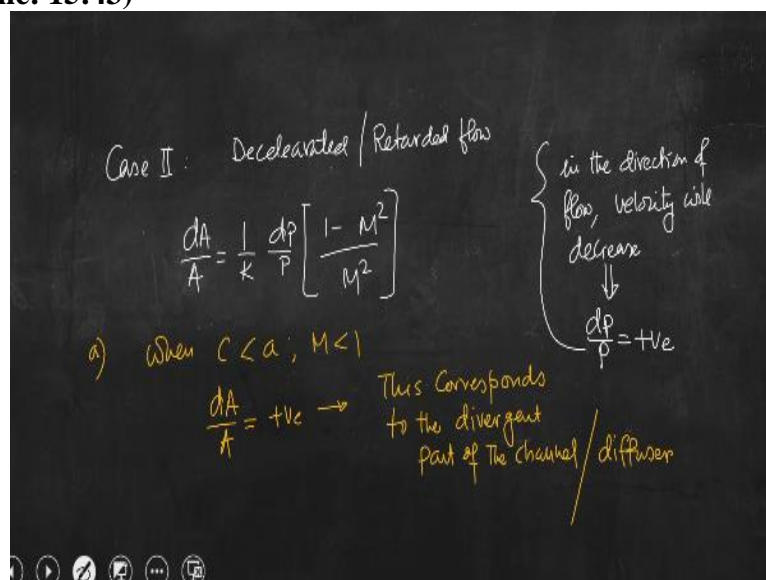 Case II : Decelearated / Retarded flow
dA/A = 1/K dP/P [ 1 - M² / M² ]
in the direction of
flow, velocity will
decrease
⇓
dP/P = +ve
a) when C < a ; M < 1
dA/A = +ve → This Corresponds
to the divergent
part of The channel / diffuser